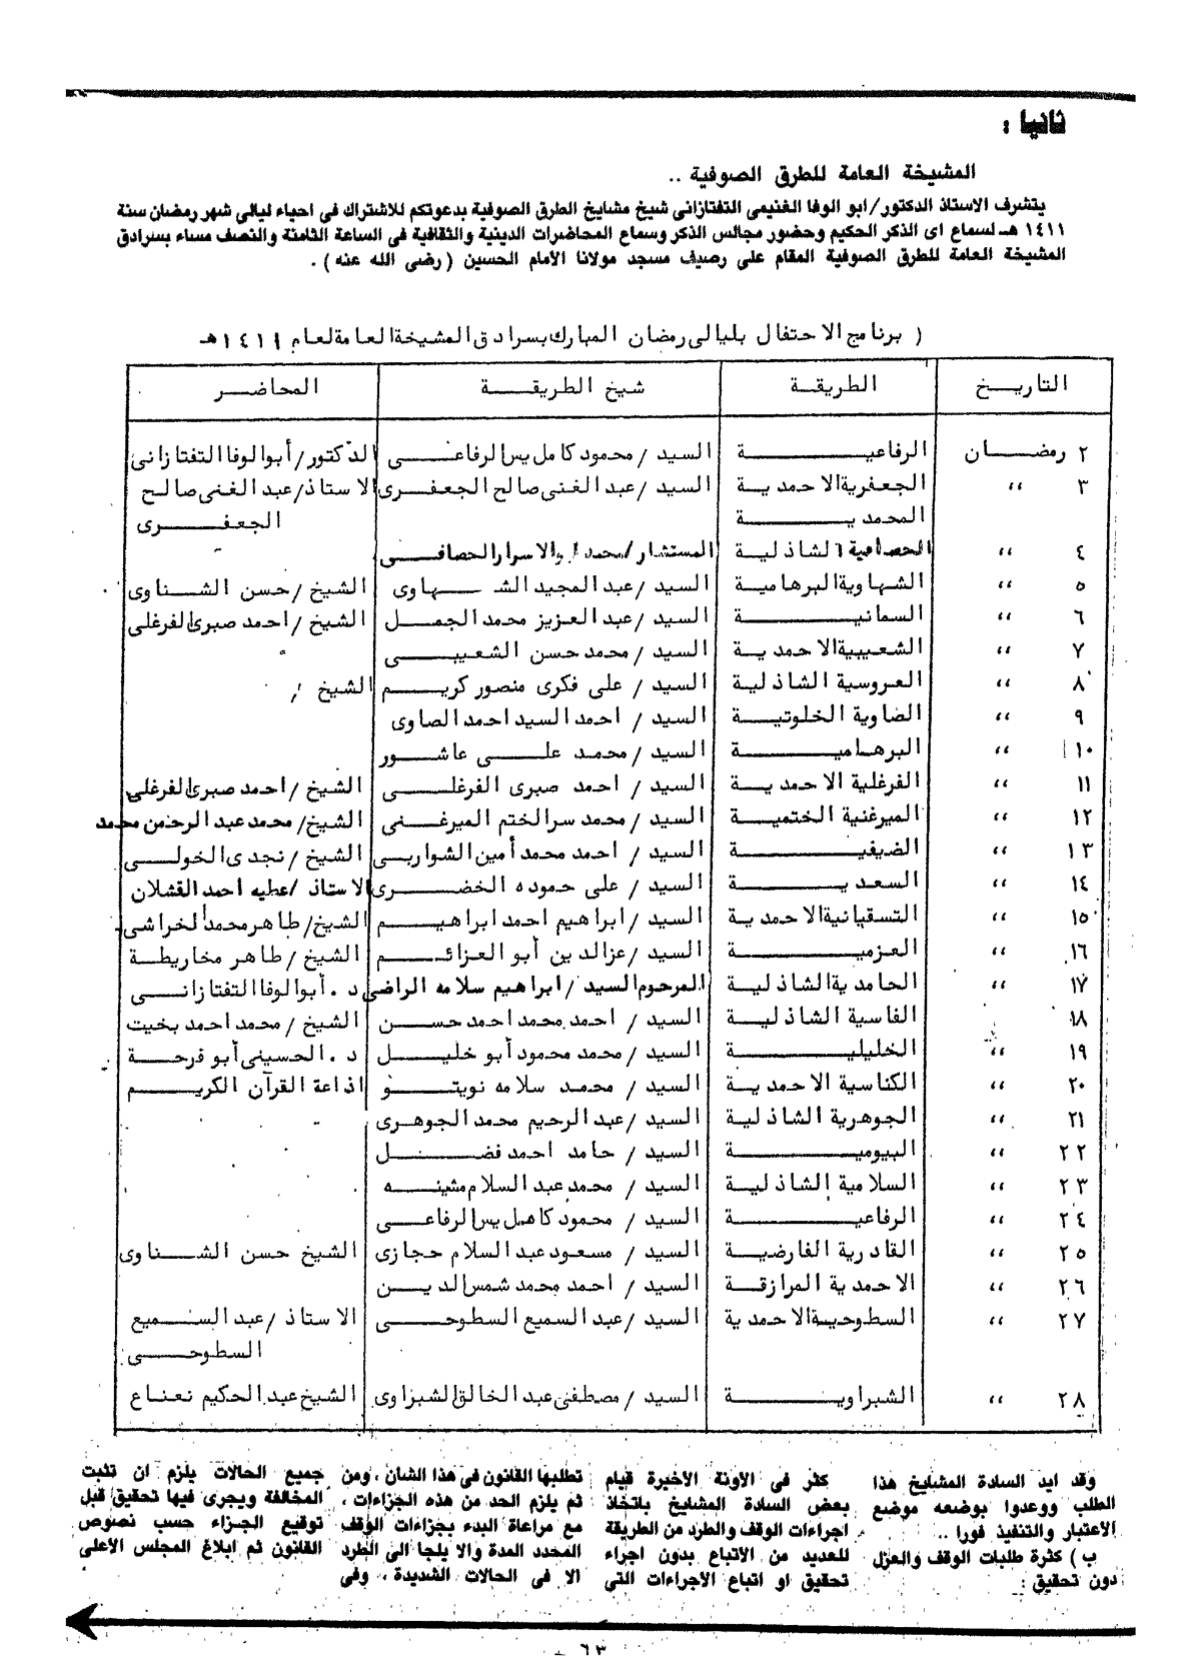 ثانيا :
المشيخة العامة للطرق الصوفية ..
يتشرف الاستاذ الدكتور/ ابو الوفا الغنيمى التفتازانى شيخ مشايخ الطرق الصوفية بدعوتكم للاشتراك فى احياء ليالى شهر رمضان سنة
١٤١١ هـ لسماع اى الذكر الحكيم وحضور مجالس الذكر وسماع المحاضرات الدينية والثقافية فى الساعة الثامنة والنصف مساء بسرادق
المشيخة العامة للطرق الصوفية المقام على رصيف مسجد مولانا الامام الحسين ( رضى الله عنه ) .
( برنامج الاحتفال بليالى رمضان المبارك بسرادق المشيخة العامة لعام ١٤١١ هـ
التاريخ الطريقة شيخ الطريقة المحاضر
٢ رمضان الرفاعية السيد / محمود كامل يس الرفاعى الدكتور/ أبو الوفا التفتازانى
٣ ،، الجعفرية الاحمدية السيد / عبد الغنى صالح الجعفرى الاستاذ/ عبد الغنى صالح
المحمدية الجعفرى
٤ ،، الحصافية الشاذلية المستشار / محمد ابو الاسرار الحصافى
٥ ،، الشهاوية البرهامية السيد / عبد المجيد الشهاوى الشيخ / حسن الشناوى
٦ ،، السمانية السيد / عبد العزيز محمد الجمل الشيخ / احمد صبرى الفرغلى
٧ ،، الشعيبية الاحمدية السيد / محمد حسن الشعيبى
٨ ،، العروسية الشاذلية السيد / على فكرى منصور كريم الشيخ /
٩ ،، الضاوية الخلوتية السيد / احمد السيد احمد الصاوى
١٠ ،، البرهامية السيد / محمد على عاشور
١١ ،، الفرغلية الاحمدية السيد / احمد صبرى الفرغلى الشيخ / احمد صبرى الفرغلى
١٢ ،، الميرغنية الختمية السيد / محمد سر الختم الميرغنى الشيخ / محمد عبد الرحمن محمد
١٣ ،، الضيفية السيد / احمد محمد أمين الشواربى الشيخ / نجدى الخولى
١٤ ،، السعدية السيد / على حموده الخضرى الاستاذ / عطيه احمد القشلان
١٥ ،، التسقيانية الاحمدية السيد / ابراهيم احمد ابراهيم الشيخ / طاهر محمد الخراشى
١٦ ،، العزمية السيد / عز الدين أبو العزائم الشيخ / طاهر مخاريطة
١٧ ،، الحامدية الشاذلية المرحوم السيد / ابراهيم سلامه الراضى د . أبو الوفا التفتازانى
١٨ ،، الفاسية الشاذلية السيد / احمد محمد احمد حسن الشيخ / محمد احمد بخيت
١٩ ،، الخليلية السيد / محمد محمود أبو خليل د . الحسينى أبو فرحة
٢٠ ،، الكناسية الاحمدية السيد / محمد سلامه نويتو اذاعة القرآن الكريم
٢١ ،، الجوهرية الشاذلية السيد / عبد الرحيم محمد الجوهرى
٢٢ ،، البيومية السيد / حامد احمد فضل
٢٣ ،، السلامية الشاذلية السيد / محمد عبد السلام مشينه
٢٤ ،، الرفاعية السيد / محمود كامل يس الرفاعى
٢٥ ،، القادرية الفارضية السيد / مسعود عبد السلام حجازى الشيخ حسن الشناوى
٢٦ ،، الاحمدية المرازقة السيد / احمد محمد شمس الدين
٢٧ ،، السطوحية الاحمدية السيد / عبد السميع السطوحى الاستاذ / عبد السميع
السطوحى
٢٨ ،، الشبراوية السيد / مصطفى عبد الخالق الشبراوى الشيخ عبد الحكيم نعناع
وقد ايد السادة المشايخ هذا
الطلب ووعدوا بوضعه موضع
الاعتبار والتنفيذ فورا ..
ب ) كثرة طلبات الوقف والعزل
دون تحقيق :
كثر فى الآونة الاخيرة قيام
بعض السادة المشايخ باتخاذ
اجراءات الوقف والطرد من الطريقة
للعديد من الاتباع بدون اجراء
تحقيق او اتباع الاجراءات التى
تطلبها القانون فى هذا الشان ، ومن
ثم يلزم الحد من هذه الجزاءات ،
مع مراعاة البدء بجزاءات الوقف
المحدد المدة والا يلجا الى الطرد
الا فى الحالات الشديدة ، وفى
جميع الحالات يلزم ان تثبت
المخالفة ويجرى فيها تحقيق قبل
توقيع الجزاء حسب نصوص
القانون ثم ابلاغ المجلس الاعلى
٦٣